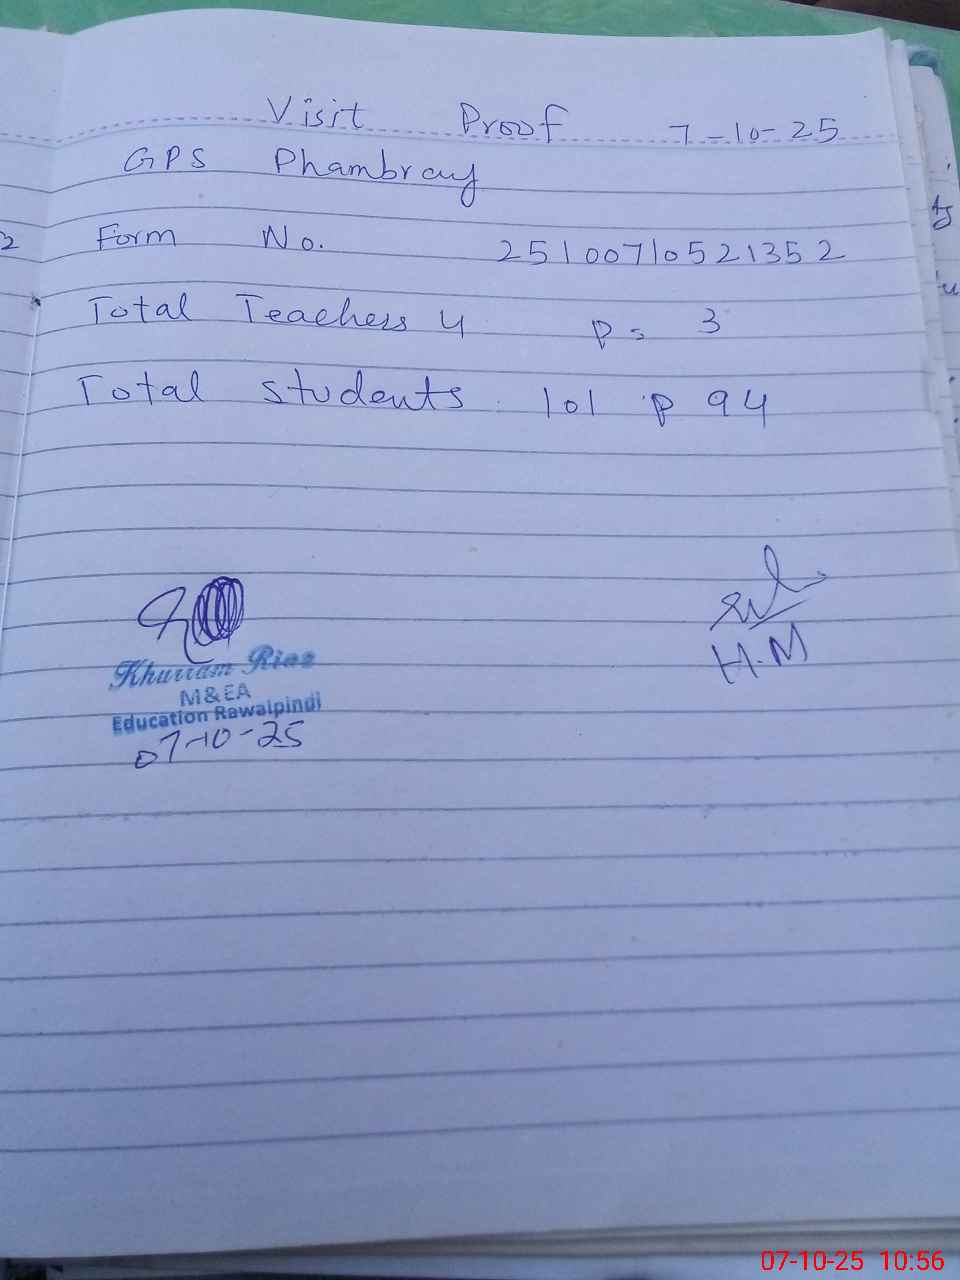 Visit Proof 7-10-25
GPS Phambray
Form No. 25100710521352
Total Teachers 4 P = 3
Total students 101 P 94
H.M
Khurram Riaz
M&EA
Education Rawalpindi
07-10-25
07-10-25 10:56